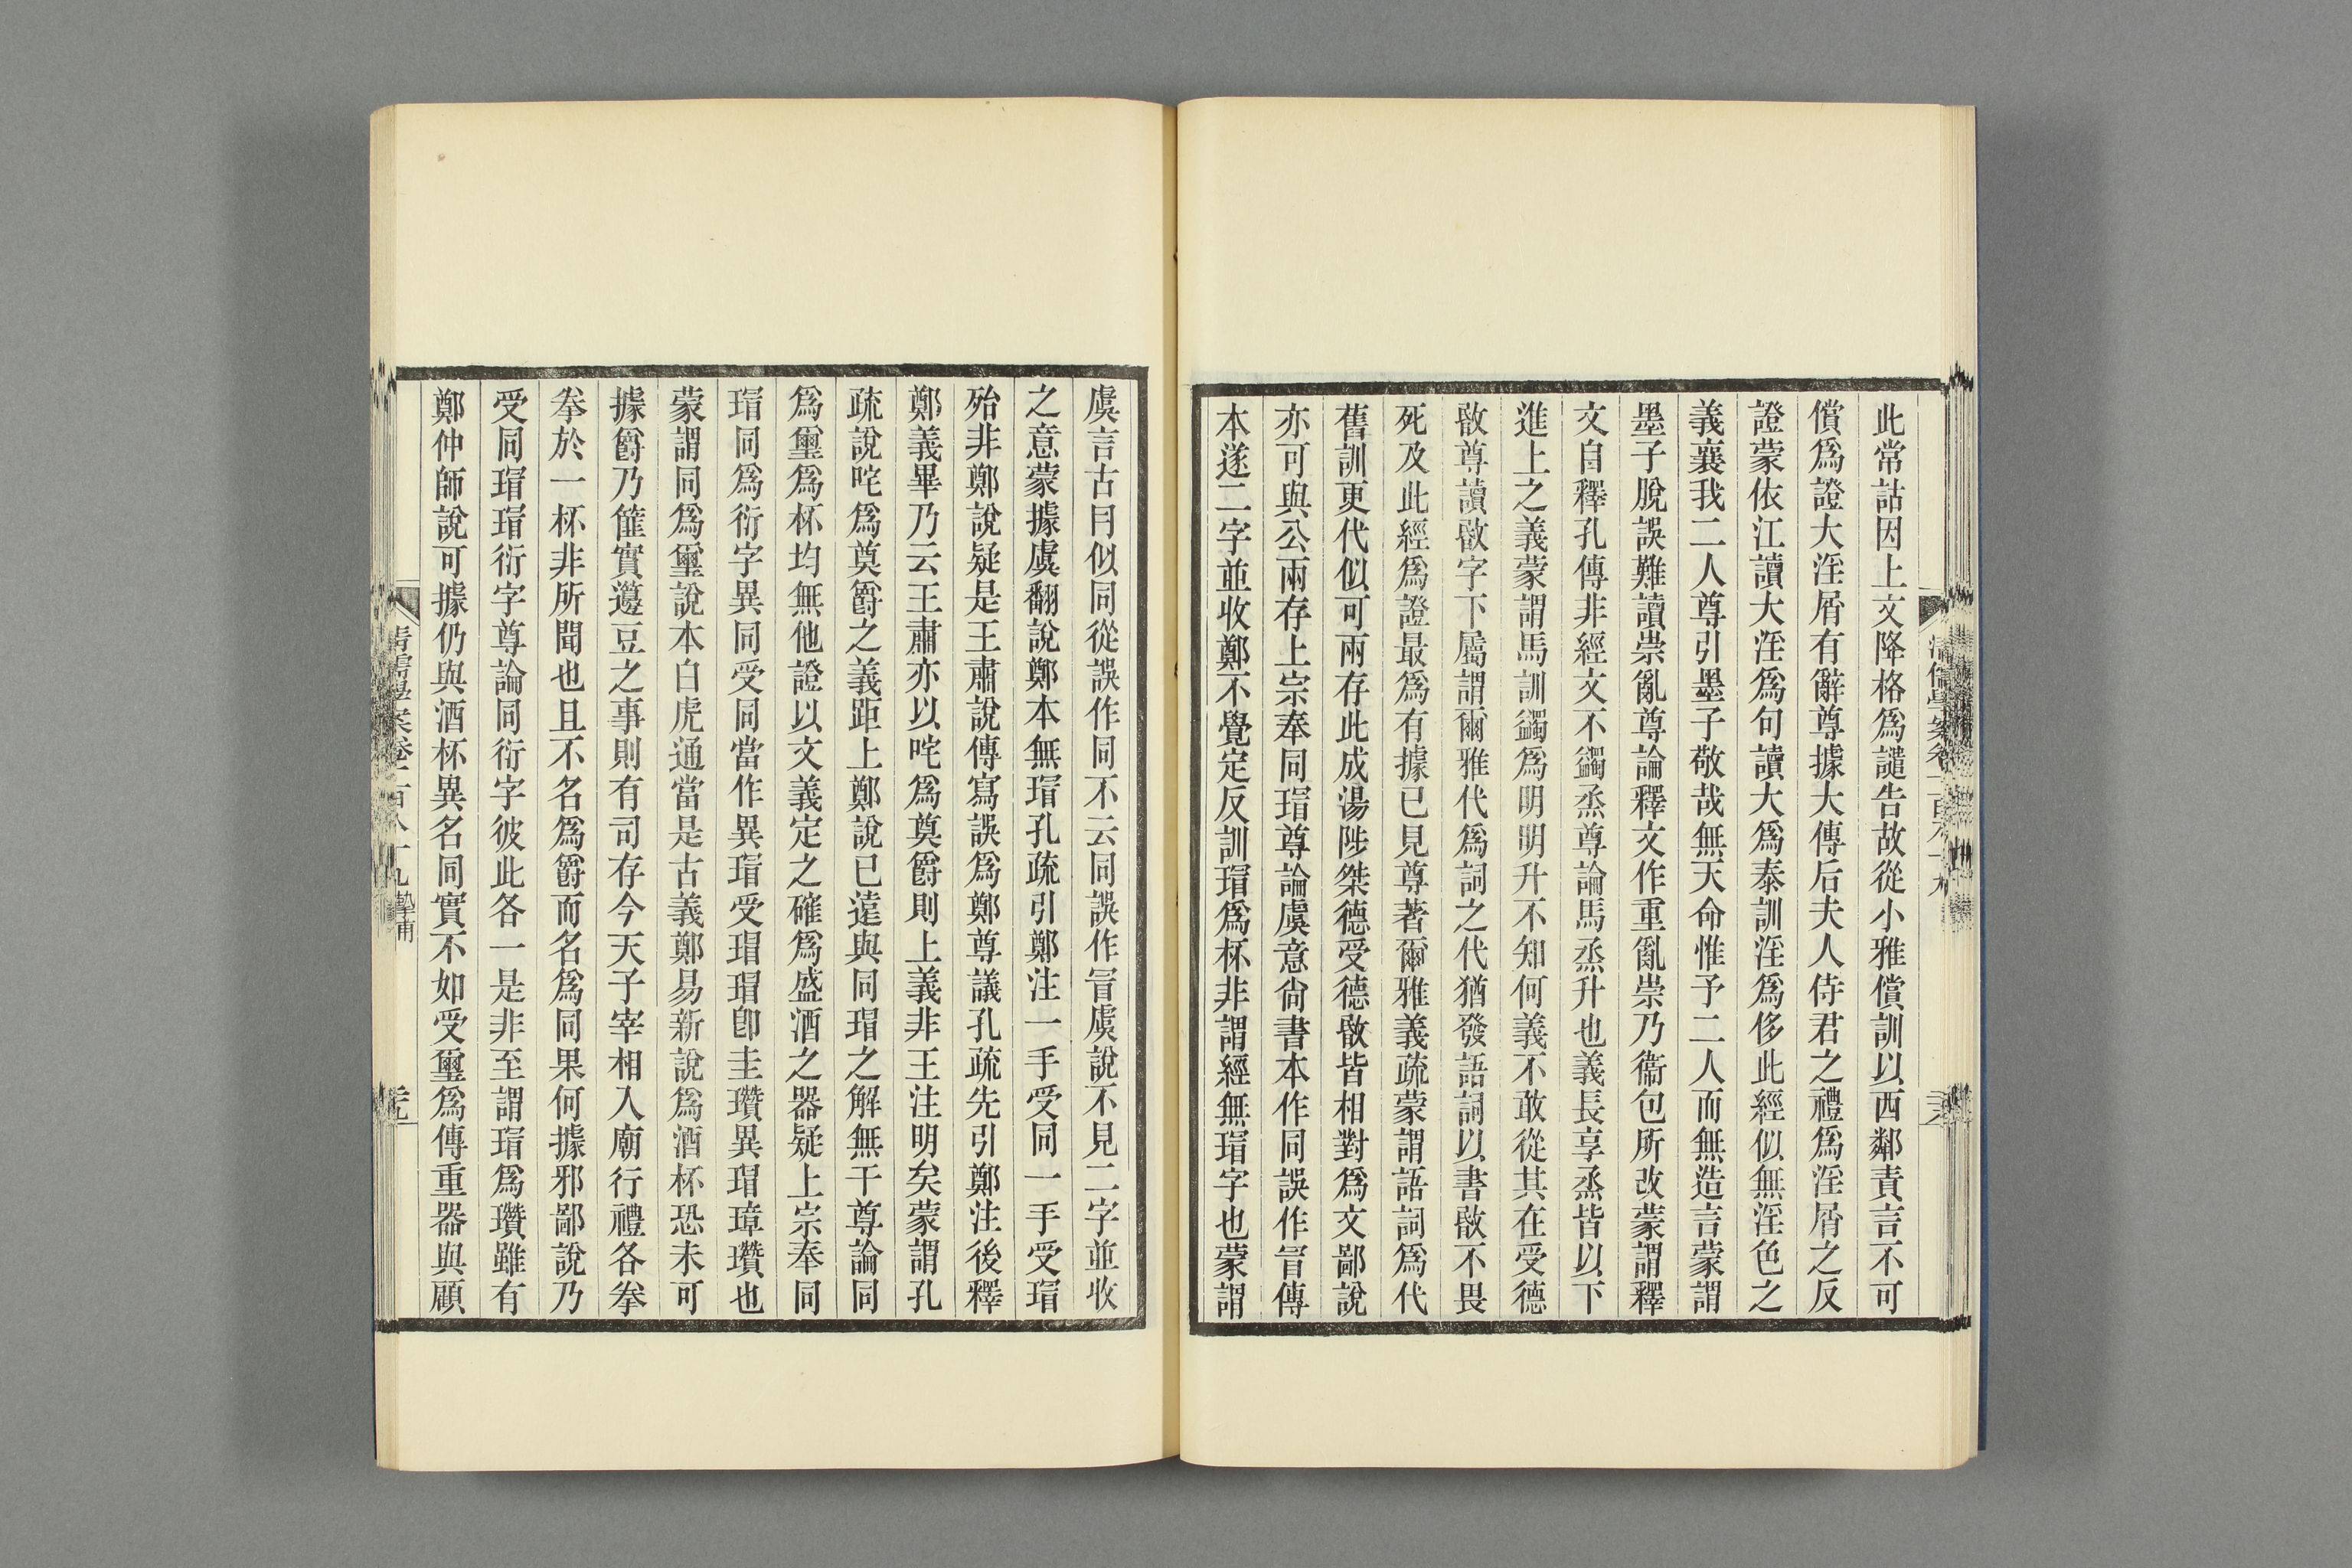 此常詁因上文降格爲譴告故從小雅償訓以西鄰責言不可
償爲證大淫屑有辭尊據大傳后夫人侍君之禮爲淫屑之反
證蒙依江讀大淫爲句讀大爲泰訓淫爲侈此經似無淫色之
義襄我二人尊引墨子敬哉無天命惟予二人而無造言蒙謂
墨子脫誤難讀崇亂尊論釋文作重亂崇乃衞包所改蒙謂釋
文自釋孔傳非經文不蠲烝尊論馬烝升也義長享烝皆以下
進上之義蒙謂馬訓蠲爲明明升不知何義不敢從其在受德
敯尊讀敯字下屬謂爾雅代爲詞之代猶發語詞以書敯不畏
死及此經爲證最爲有據已見尊著爾雅義疏蒙謂語詞爲代
舊訓更代似可兩存此成湯陟桀德受德敯皆相對爲文鄙說
亦可與公兩存上宗奉同瑁尊論虞意尙書本作同誤作冒傳
本遂二字並收鄭不覺定反訓瑁爲杯非謂經無瑁字也蒙謂
虞言古冃似同從誤作同不云同誤作冒虞說不見二字並收
之意蒙據虞翻說鄭本無瑁孔疏引鄭注一手受同一手受瑁
殆非鄭說疑是王肅說傳寫誤爲鄭尊議孔疏先引鄭注後釋
鄭義畢乃云王肅亦以咤爲奠爵則上義非王注明矣蒙謂孔
疏說咤爲奠爵之義距上鄭說已遠與同瑁之解無干尊論同
爲璽爲杯均無他證以文義定之確爲盛酒之器疑上宗奉同
瑁同爲衍字異同受同當作異瑁受瑁瑁卽圭瓚異瑁璋瓚也
蒙謂同爲璽說本白虎通當是古義鄭易新說爲酒杯恐未可
據爵乃篚實籩豆之事則有司存今天子宰相入廟行禮各拳
拳於一杯非所聞也且不名爲爵而名爲同果何據邪鄙說乃
受同瑁瑁衍字尊論同衍字彼此各一是非至謂瑁爲瓚雖有
鄭仲師說可據仍與酒杯異名同實不如受璽爲傳重器與顧